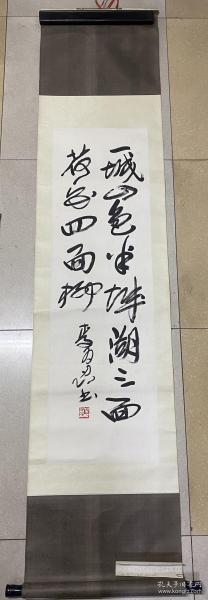 一城山色半城湖三面
荷花四面柳
书
孔夫子旧书网